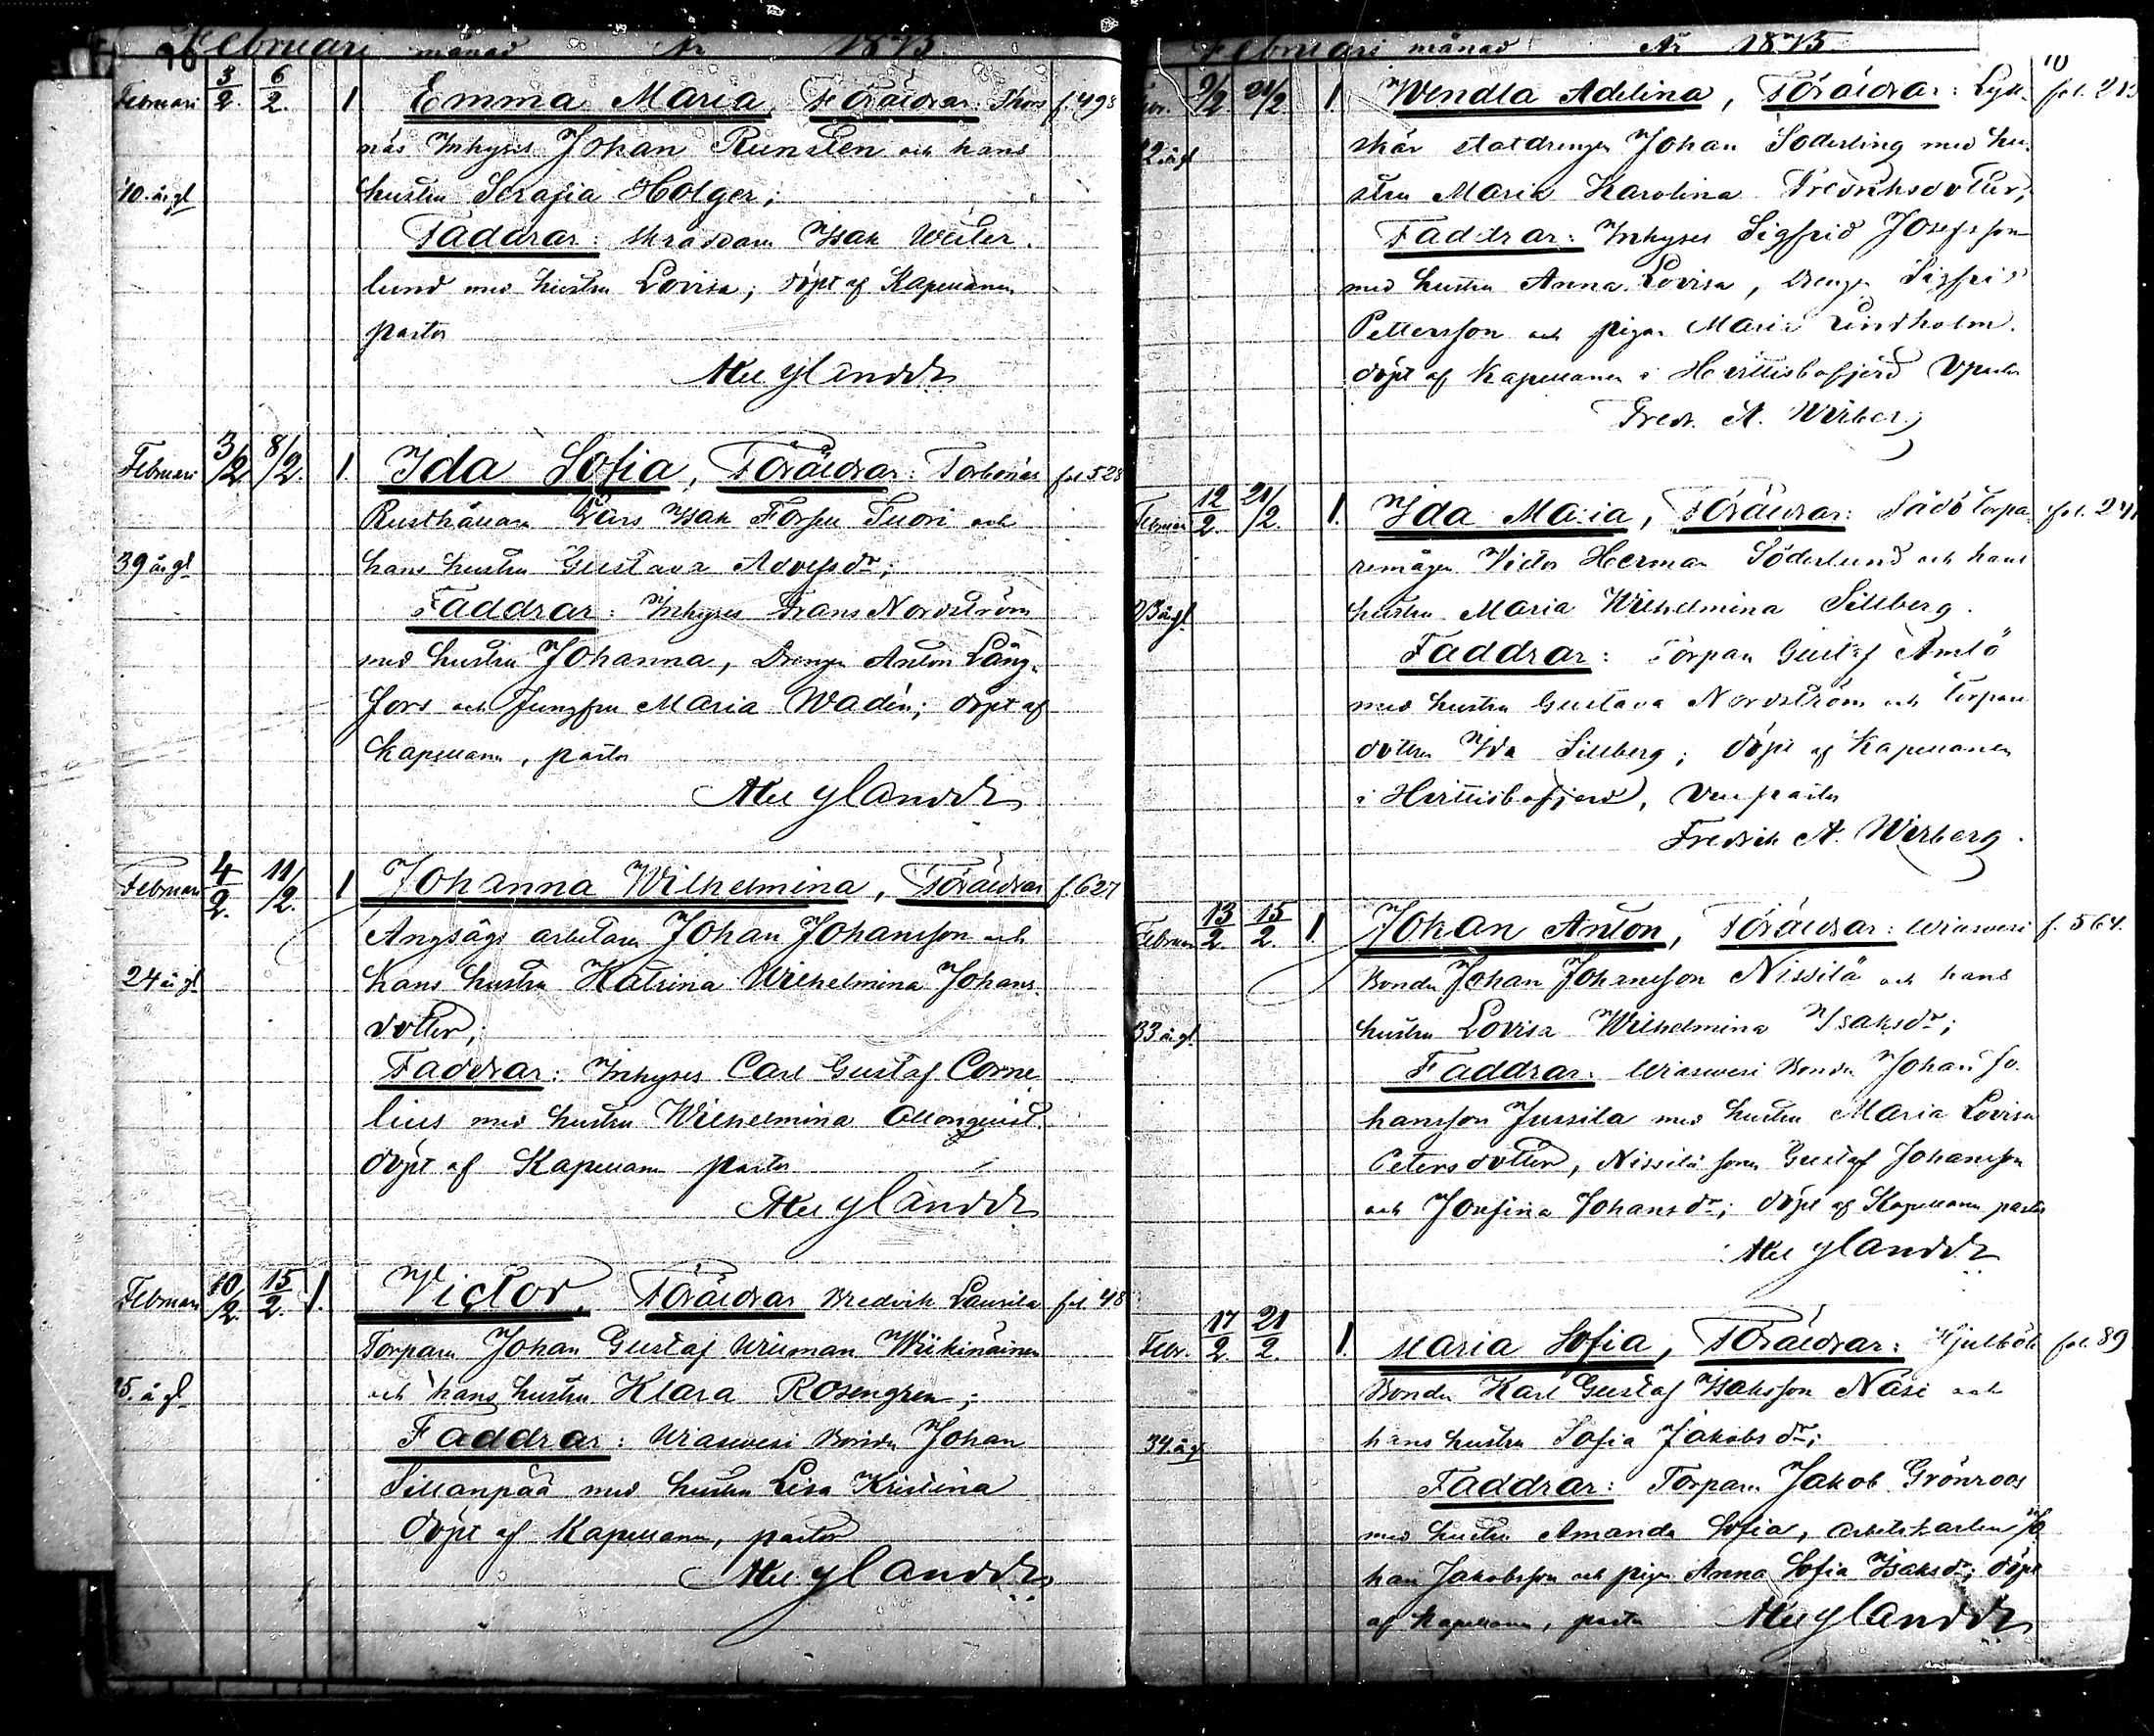 Februari månad År 1875
Februari 3/2. 6/2. 1 Emma Maria, Föräldrar: Thors f. 498
näs Inhyses Johan Runsten och hans
40. år gl hustru Serafia Holger;
Faddrar: skräddarn Isak Wester-
lund med hustru Lovisa; döpt af Kapellanen
pastor
Nylander
Februari 3/2. 8/2. 1. Ida Sofia, Föräldrar: Torbonäs fol 528
Rusthållarn Lars Isak Förspu Tuori och
39 år gl hans hustru Gustava Adolfsdr;
Faddrar: Inhyses Frans Nordström
med hustru Johanna, Drengen Anton Lång-
fors och Jungfru Maria Wadén; döpt af
Kapellanen, pastor
Nylander
Februari 4/2. 11/2. 1 Johanna Wilhelmina, Föräldrar f. 627
Ångsågs arbetaren Johan Johansson och
24 år gl hans hustru Katrina Wilhelmina Johans-
dotter;
Faddrar: Inhyses Carl Gustaf Corne
lius med hustru Wilhelmina Malmquist.
döpt af Kapellanen pastor
Nylander
Februari 10/2. 15/2. 1. Victor, Föräldrar Bredvik Laurila fol 48
Torparen Johan Gustaf Wiman Wiikinäinen
år gl och hans hustru Klara Rosengren;
Faddrar: Wiasvesi Bonden Johan
Sillanpää med hustru Lisa Kristina
döpt af Kapellanen, pastor
Nylander
Februari månad År 1875
10
9/2. 21/2. 1. Wendla Adelina, Föräldrar: Lyk- fol.
skär statdrengen Johan Söderling med hu-
år gl stru Maria Karolina Fredriksdotter;
Faddrar: Inhyses Sigfrid Josefsson
med hustru Anna Lovisa, Drengen Sigfrid
Pettersson och pigan Maria Lindholm.
döpt af Kapellanen i Hvittisbofjerd Vpastor
Fredr. A. Wirberg
Februari 12/2. 21/2. 1. Ida Maria, Föräldrar: Sådö Torpa- fol. 241
remågen Victor Herman Söderlund och hans
år gl hustru Maria Wilhelmina Sillberg.
Faddrar: Torparn Gustaf Amlö
med hustru Gustava Nordström och Torpare
dottren Ida Sillberg; döpt af Kapellanen
i Hvittisbofjerd, Vice pastor
Fredrik A. Wirberg.
Februari 13/2. 15/2. 1. Johan Anton, Föräldrar: Wiasvesi f. 564.
Bonden Johan Johansson Nissilä och hans
33 år gl. hustru Lovisa Wilhelmina Isaksdr;
Faddrar: Wiasvesi Bonden Johan Jo-
hansson Jussila med hustru Maria Lovisa
Petersdotter, Nissilä sonen Gustaf Johansson
och Josefina Johansdr; döpt af Kapellanen pastor
Nylander
Febr. 17/2. 21/2. 1. Maria Sofia, Föräldrar: Hjulböle fol. 89
Bonden Karl Gustaf Isaksson Näsi och
34 år gl hans hustru Sofia Jakobsdr;
Faddrar: Torparen Jakob Grönroos
med hustru Amanda Sofia, arbetskarlen Jo
han Jakobsson och pigan Anna Sofia Isaksdr; döpt
af Kapellanen, pastor Nylander